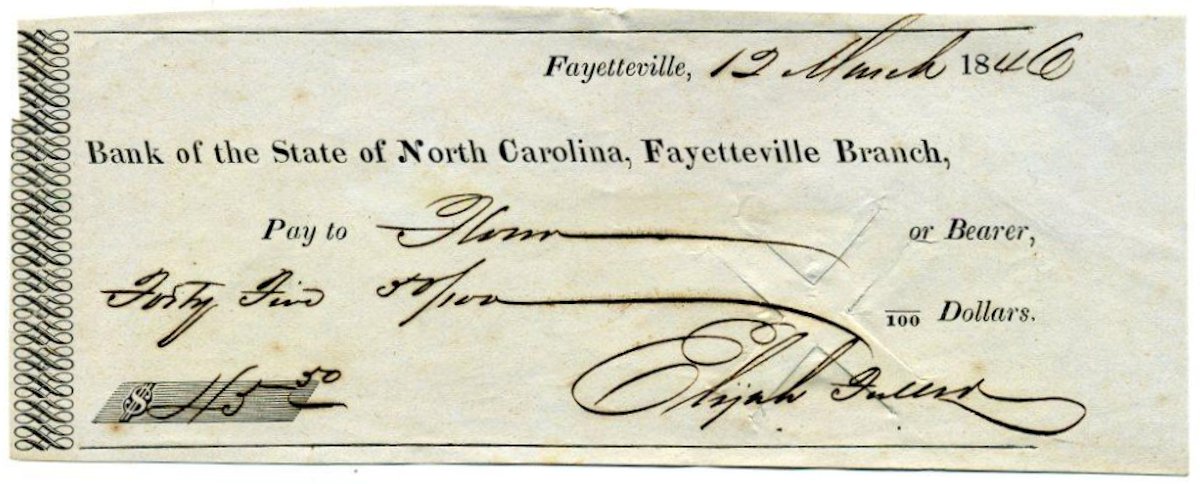 Fayetteville, 12 March 1846
Bank of the State of North Carolina, Fayetteville Branch,
Pay to or Bearer,
Forty Five 50/100 /100 Dollars.
$ 45 50
Elijah Fuller